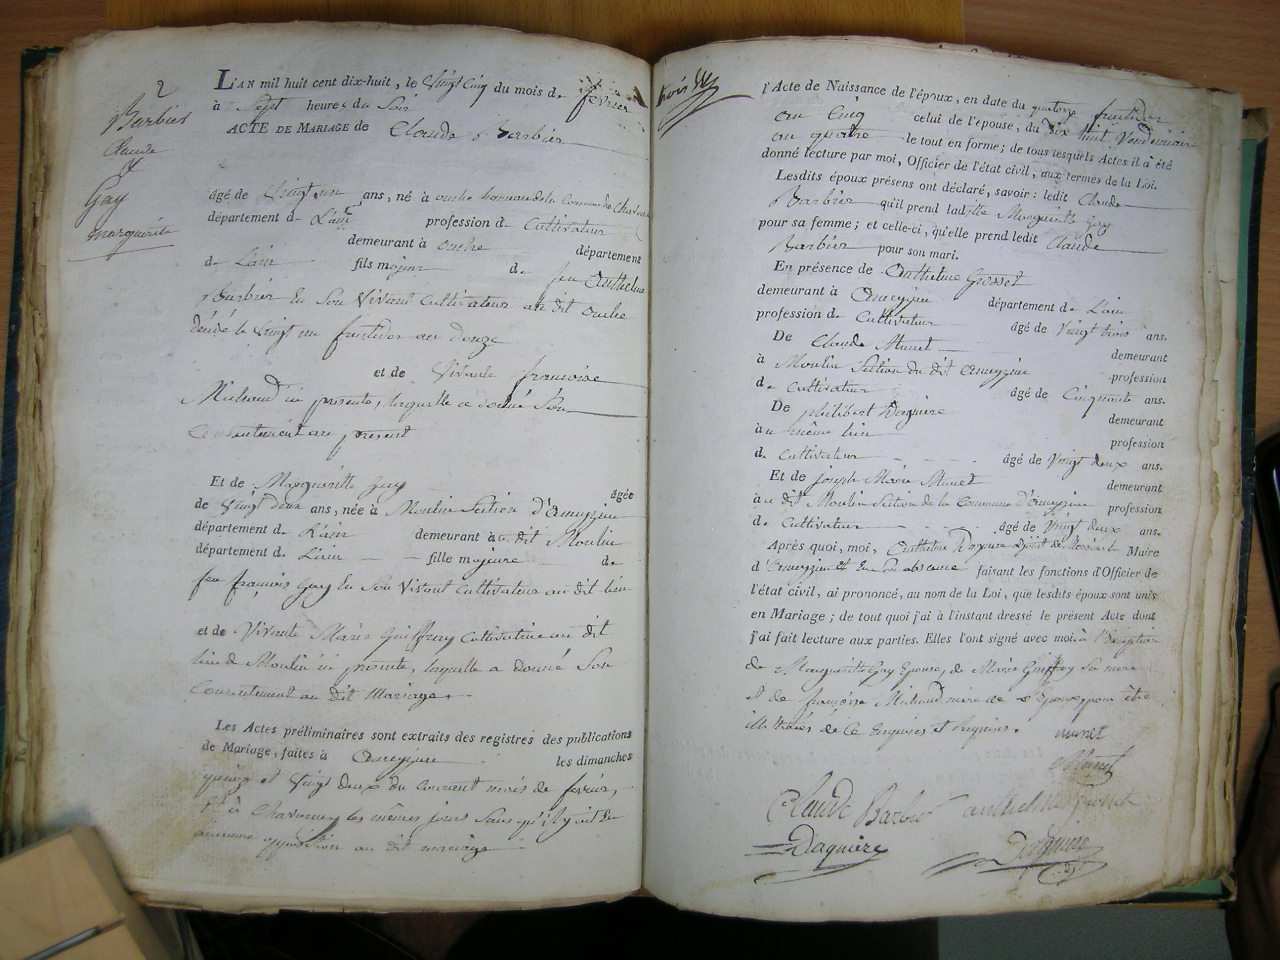 2
Barbier
Claude
et
Gay
marguerite
L'AN mil huit cent dix-huit, le vingt cinq du mois de fevrier
à Sept heures du Soir
ACTE DE MARIAGE de Claude Barbier
âgé de vingt un ans, né à ouche hameau de la Commune de
département de L'ain profession de Cultivateur
demeurant à ouche département
de L'ain fils majeur de feu Anthelme
Barbier En Son Vivant Cultivateur au dit ouche
décédé le vingt un fructidor an douze
et de Vivante françoise
Michaud ici presente, laquelle a donné Son
Consentement au present
Et de Marguerite Gay âgée
de vingt deux ans, née à Moulin Section d'
département de L'ain demeurant au dit Moulin
département de L'ain fille majeure de
feu françois Gay En Son Vivant Cultivateur au dit lieu
et de Vivante Marie Guiffrey Cultivatrice au dit
lieu de Moulin ici presente, laquelle a donné Son
Consentement au dit Mariage.
Les Actes préliminaires sont extraits des registres des publications
de Mariage, faites à les dimanches
quinze et vingt deux du Courant mois de fevrier,
et à les mêmes jours Sans qu'il y ait Eu
aucune opposition au dit mariage
trois
l'Acte de Naissance de l'époux, en date du quatorze fructidor
an Cinq celui de l'épouse, du dix huit Vendémiaire
an quatre le tout en forme; de tous lesquels Actes il a été
donné lecture par moi, Officier de l'état civil, aux termes de la Loi.
Lesdits époux présens ont déclaré, savoir: ledit Claude
Barbier qu'il prend ladite Marguerite Gay
pour sa femme; et celle-ci, qu'elle prend ledit Claude
Barbier pour son mari.
En présence de Anthelme Grosset
demeurant à département de L'ain
profession de Cultivateur âgé de Vingt trois ans.
De Claude Munet demeurant
à Moulin Section du dit profession
de Cultivateur âgé de Cinquante ans.
De philibert Daguiere demeurant
à u même lieu profession
de Cultivateur âgé de Vingt deux ans.
Et de joseph Marie Munet demeurant
à u dit Moulin Section de la Commune d' profession
de Cultivateur âgé de Vingt deux ans.
Après quoi, moi, Anthelme Daguiere adjoint de Monsieur le Maire
d' et En Son absence faisant les fonctions d'Officier de
l'état civil, ai prononcé, au nom de la Loi, que lesdits époux sont unis
en Mariage; de tout quoi j'ai à l'instant dressé le présent Acte dont
j'ai fait lecture aux parties. Elles l'ont signé avec moi à l'Exception
de Marguerite Gay Epouse, de Marie Guiffrey Sa mere
et de françoise Michaud mere de l'Epoux pour être
illittérées de ce Enquises et requises. munet
Munet
Claude Barbié anthelme grosset
Daguiere Daguiere